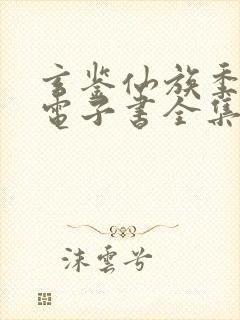 玄鉴仙族季
電子書全集
沫雲兮